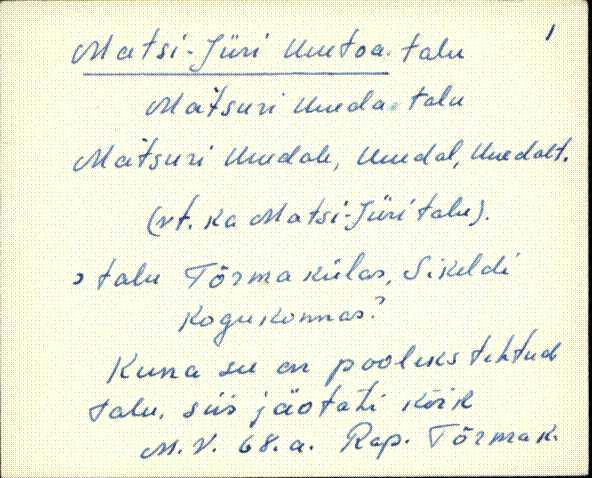 1
Matsi-Jüri Uuetoa talu
Matsuri Uueda talu
Matsuri Uuedale, Uuedal, Uuedalt.
(vt. ka Matsi-Jüri talu).
talu Tõrma külas, Sikeldi
kogukonnas?
Kuna see on pooleks tehtud
talu, siis jäotati kõik
M. V. 68.a. Rap. Tõrma k.